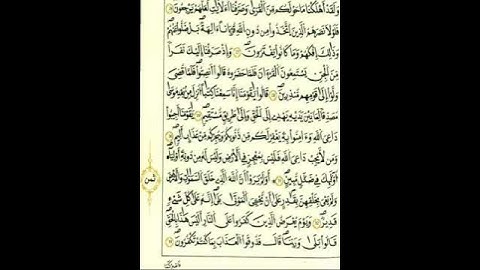 وَلَقَدْ أَهْلَكْنَا مَا حَوْلَكُم مِّنَ ٱلْقُرَىٰ وَصَرَّفْنَا ٱلْأَيَٰتِ لَعَلَّهُمْ يَرْجِعُونَ
فَلَوْلَا نَصَرَهُمُ ٱلَّذِينَ ٱتَّخَذُوا۟ مِن دُونِ ٱللَّهِ قُرْبَانًا ءَالِهَةَۢ بَلْ ضَلُّوا۟ عَنْهُمْ
وَذَٰلِكَ إِفْكُهُمْ وَمَا كَانُوا۟ يَفْتَرُونَ وَإِذْ صَرَفْنَآ إِلَيْكَ نَفَرًا
مِّنَ ٱلْجِنِّ يَسْتَمِعُونَ ٱلْقُرْءَانَ فَلَمَّا حَضَرُوهُ قَالُوٓا۟ أَنصِتُوا۟ فَلَمَّا قُضِىَ
وَلَّوْا۟ إِلَىٰ قَوْمِهِم مُّنذِرِينَ قَالُوا۟ يَٰقَوْمَنَآ إِنَّا سَمِعْنَا كِتَٰبًا أُنزِلَ مِنۢ بَعْدِ مُوسَىٰ
مُصَدِّقًا لِّمَا بَيْنَ يَدَيْهِ يَهْدِىٓ إِلَى ٱلْحَقِّ وَإِلَىٰ طَرِيقٍ مُّسْتَقِيمٍ يَٰقَوْمَنَآ أَجِيبُوا۟
دَاعِىَ ٱللَّهِ وَءَامِنُوا۟ بِهِۦ يَغْفِرْ لَكُم مِّن ذُنُوبِكُمْ وَيُجِرْكُم مِّنْ عَذَابٍ أَلِيمٍ
وَمَن لَّا يُجِبْ دَاعِىَ ٱللَّهِ فَلَيْسَ بِمُعْجِزٍ فِى ٱلْأَرْضِ وَلَيْسَ لَهُۥ مِن دُونِهِۦٓ أَوْلِيَآءُ
أُو۟لَٰٓئِكَ فِى ضَلَٰلٍ مُّبِينٍ أَوَلَمْ يَرَوْا۟ أَنَّ ٱللَّهَ ٱلَّذِى خَلَقَ ٱلسَّمَٰوَٰتِ وَٱلْأَرْضَ
وَلَمْ يَعْىَ بِخَلْقِهِنَّ بِقَٰدِرٍ عَلَىٰٓ أَن يُحْـِۧىَ ٱلْمَوْتَىٰ بَلَىٰٓ إِنَّهُۥ عَلَىٰ كُلِّ شَىْءٍ
قَدِيرٌ وَيَوْمَ يُعْرَضُ ٱلَّذِينَ كَفَرُوا۟ عَلَى ٱلنَّارِ أَلَيْسَ هَٰذَا بِٱلْحَقِّ
قَالُوا۟ بَلَىٰ وَرَبِّنَا قَالَ فَذُوقُوا۟ ٱلْعَذَابَ بِمَا كُنتُمْ تَكْفُرُونَ
ثمن